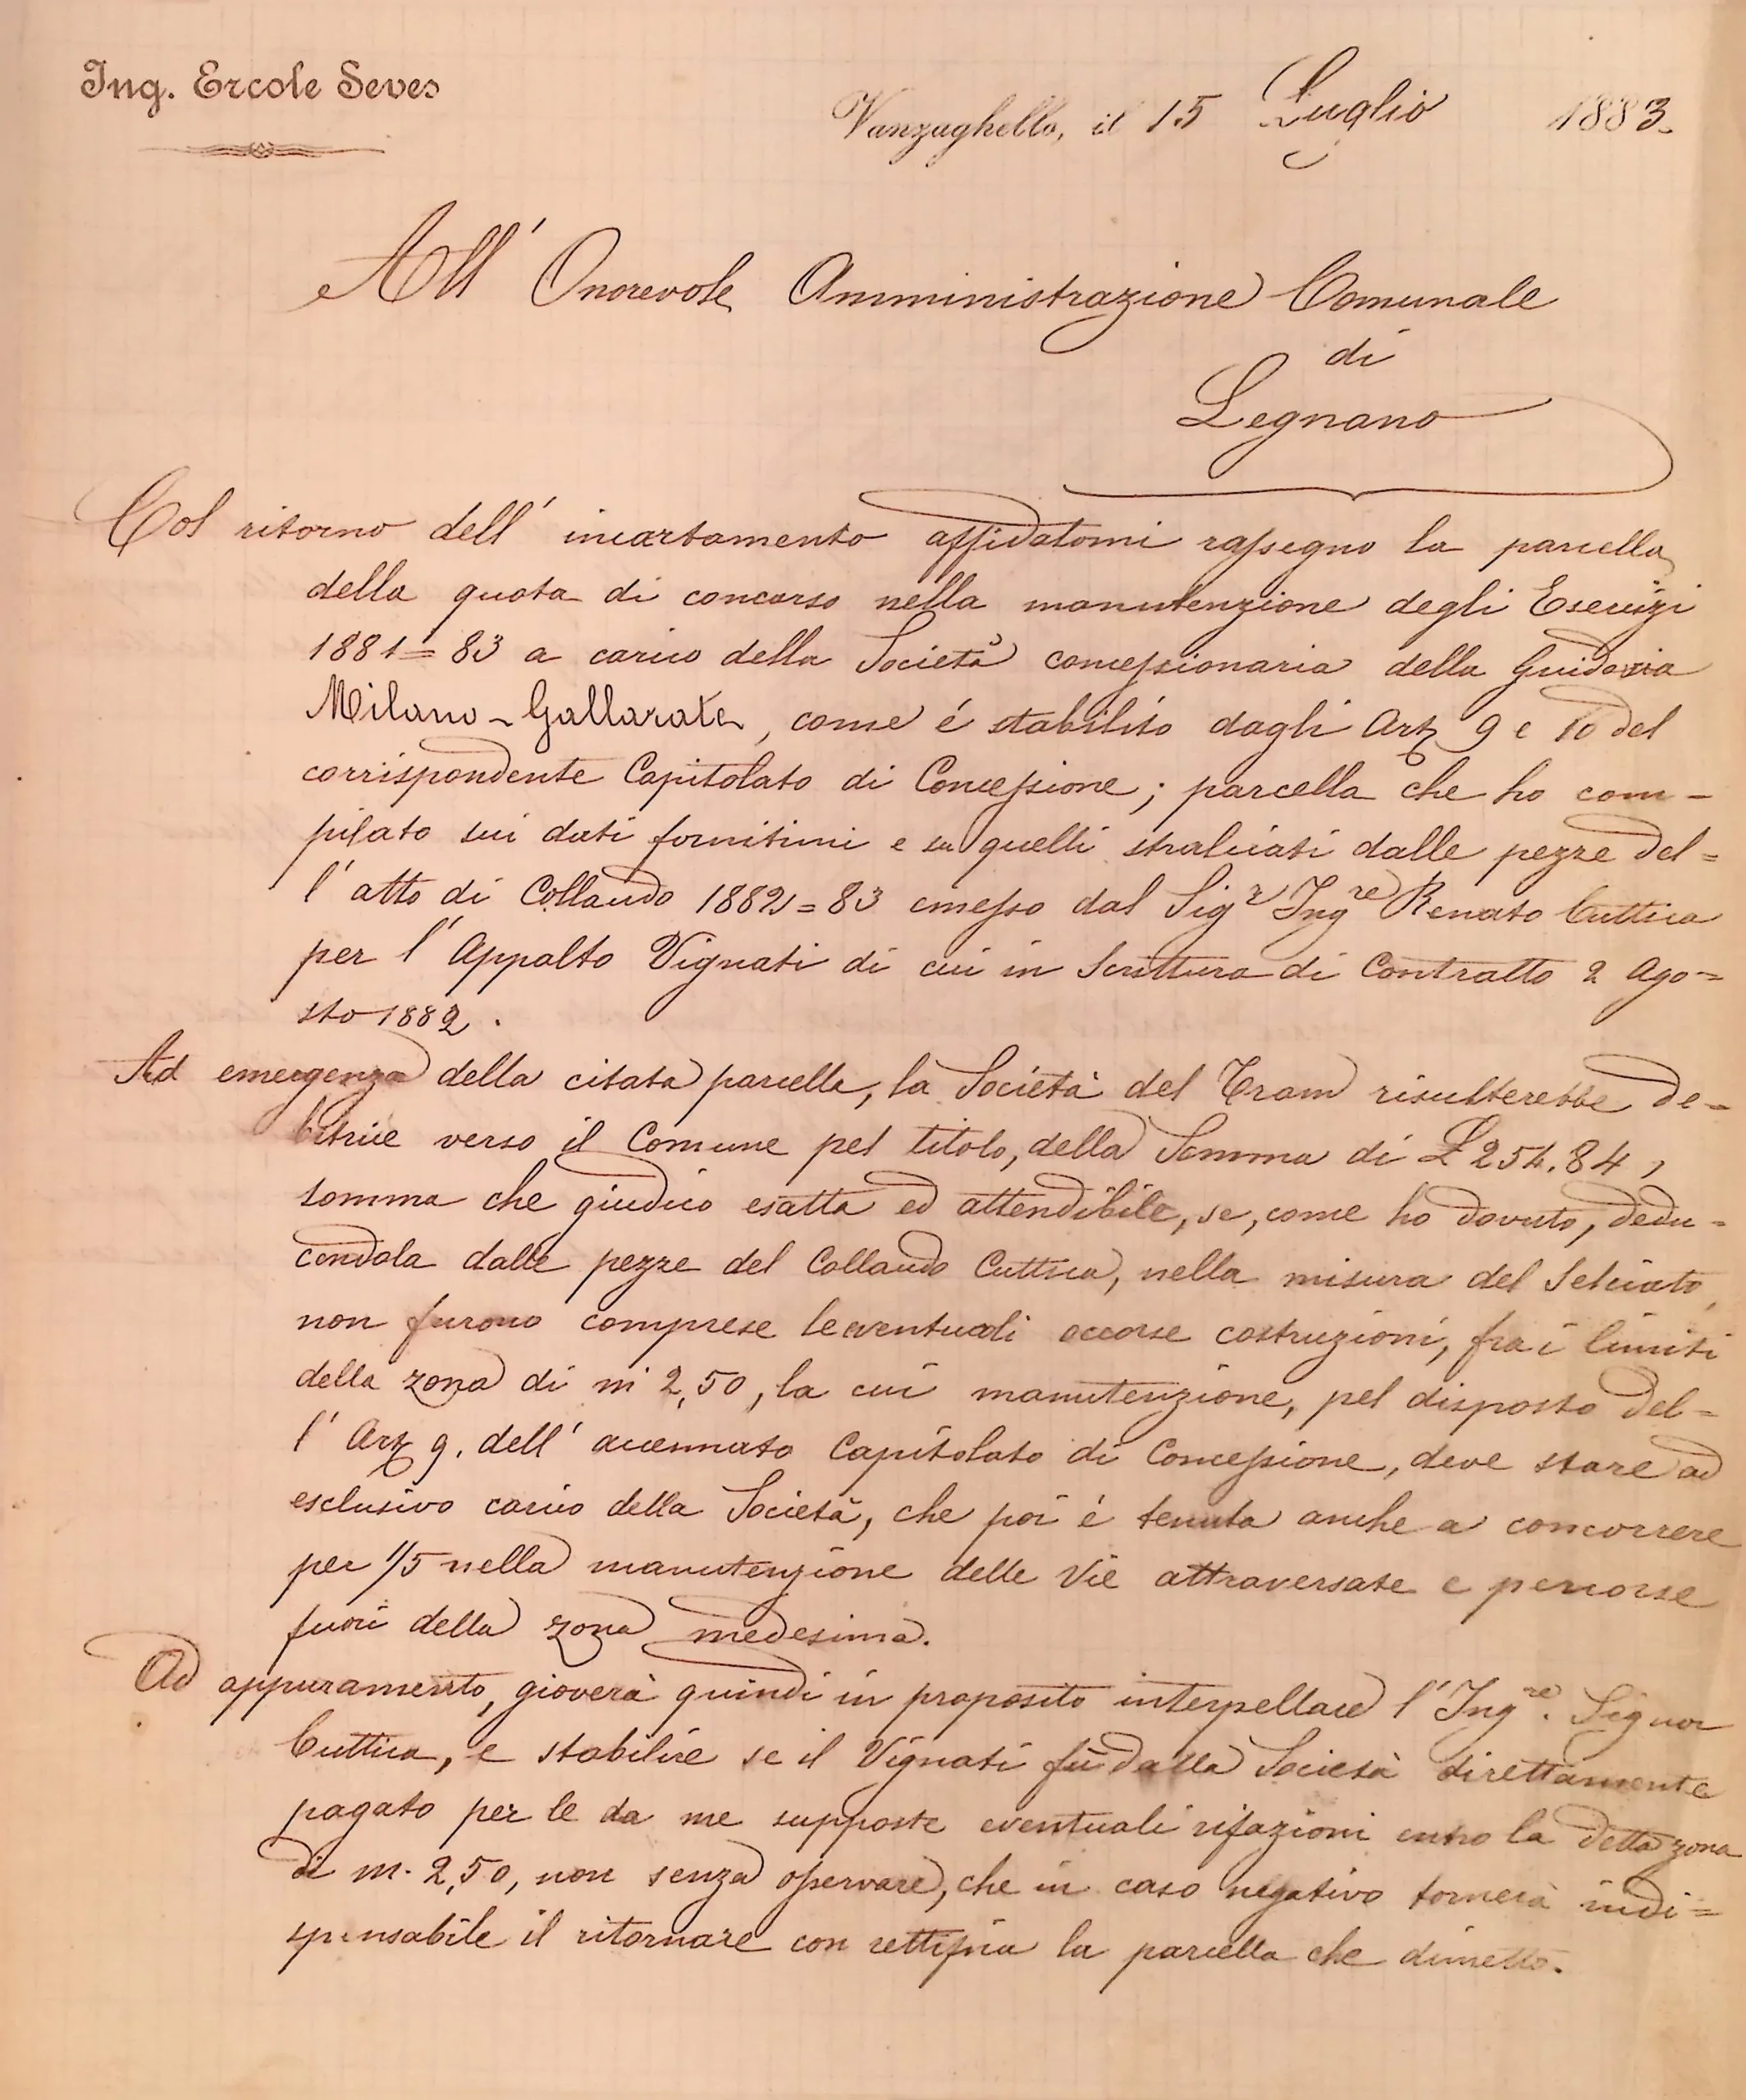 Ing. Ercole Seves
Vanzaghello, il 15 Luglio 1883.
All' Onorevole Amministrazione Comunale
di
Legnano
Col ritorno dell' incartamento affidatomi rassegno la parcella
della quota di concorso nella manutenzione degli Esercizi
1881=83 a carico della Società concessionaria della Guidovia
Milano-Gallarate, come é stabilito dagli Art. 9 e 10 del
corrispondente Capitolato di Concessione; parcella che ho com-
pilato sui dati fornitimi e su quelli stralciati dalle pezze del=
l' atto di Collaudo 1882=83 emesso dal Sigr Ingre Renato Cuttica
per l' Appalto Vignati di cui in Scrittura di Contratto 2 Ago=
sto 1882.
Ad emergenza della citata parcella, la Società del Tram risulterebbe de=
bitrice verso il Comune pel titolo, della Somma di £ 254.84,
somma che giudico esatta ed attendibile, se, come ho dovuto, dedu=
cendola dalle pezze del Collaudo Cuttica, nella misura del Selciato,
non furono comprese le eventuali occorse costruzioni, fra i limiti
della zona di m 2,50, la cui manutenzione, pel disposto del=
l' Art. 9. dell' accennato Capitolato di Concessione, deve stare ad
esclusivo carico della Società, che poi é tenuta anche a concorrere
per 1/5 nella manutenzione delle Vie attraversate e percorse
fuori della zona medesima.
Ad appuramento, gioverà quindi in proposito interpellare l' Ingre. Signor
Cuttica, e stabilire se il Vignati fù dalla Società direttamente
pagato per le da me supposte eventuali rifazioni entro la detta zona
di m. 2,50, non senza osservare, che in caso negativo tornerà indi=
spensabile il ritornare con rettifica la parcella che dimetto.